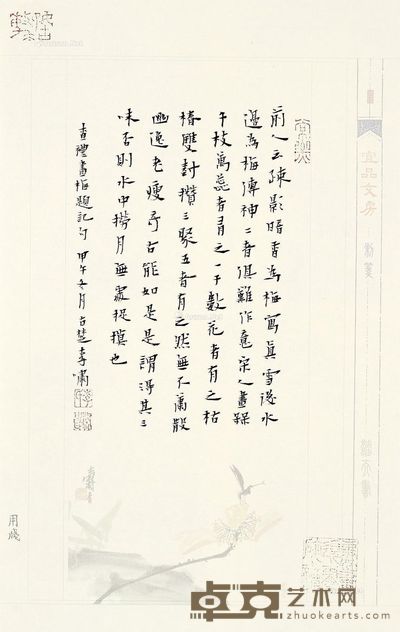 前人云疎影暗香為梅寫真雪後水
邊為梅傳神二者俱難作意宋人畫梅
千枝萬蕊者有之一干數花者有之枯
椿雙計攢三聚五者有之然無不蕭散
幽逸老瘦予古能如是是謂得其三
味否則水中撈月無處捉摸也
香禮畫梅題記句 甲午冬月古楚李嘯
宜品文房
用箋
卓克艺术网
www.zhuokearts.com